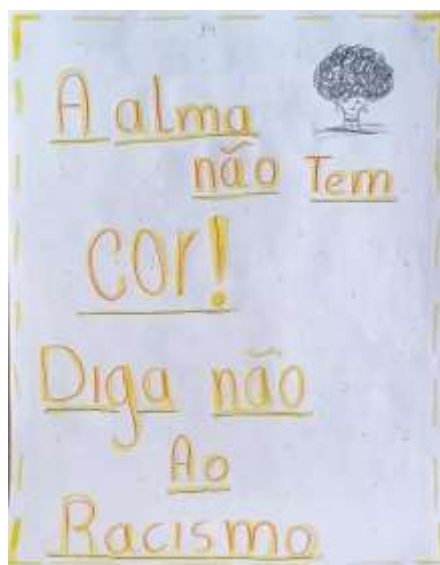 A alma
não Tem
cor!
Diga não
Ao
Racismo